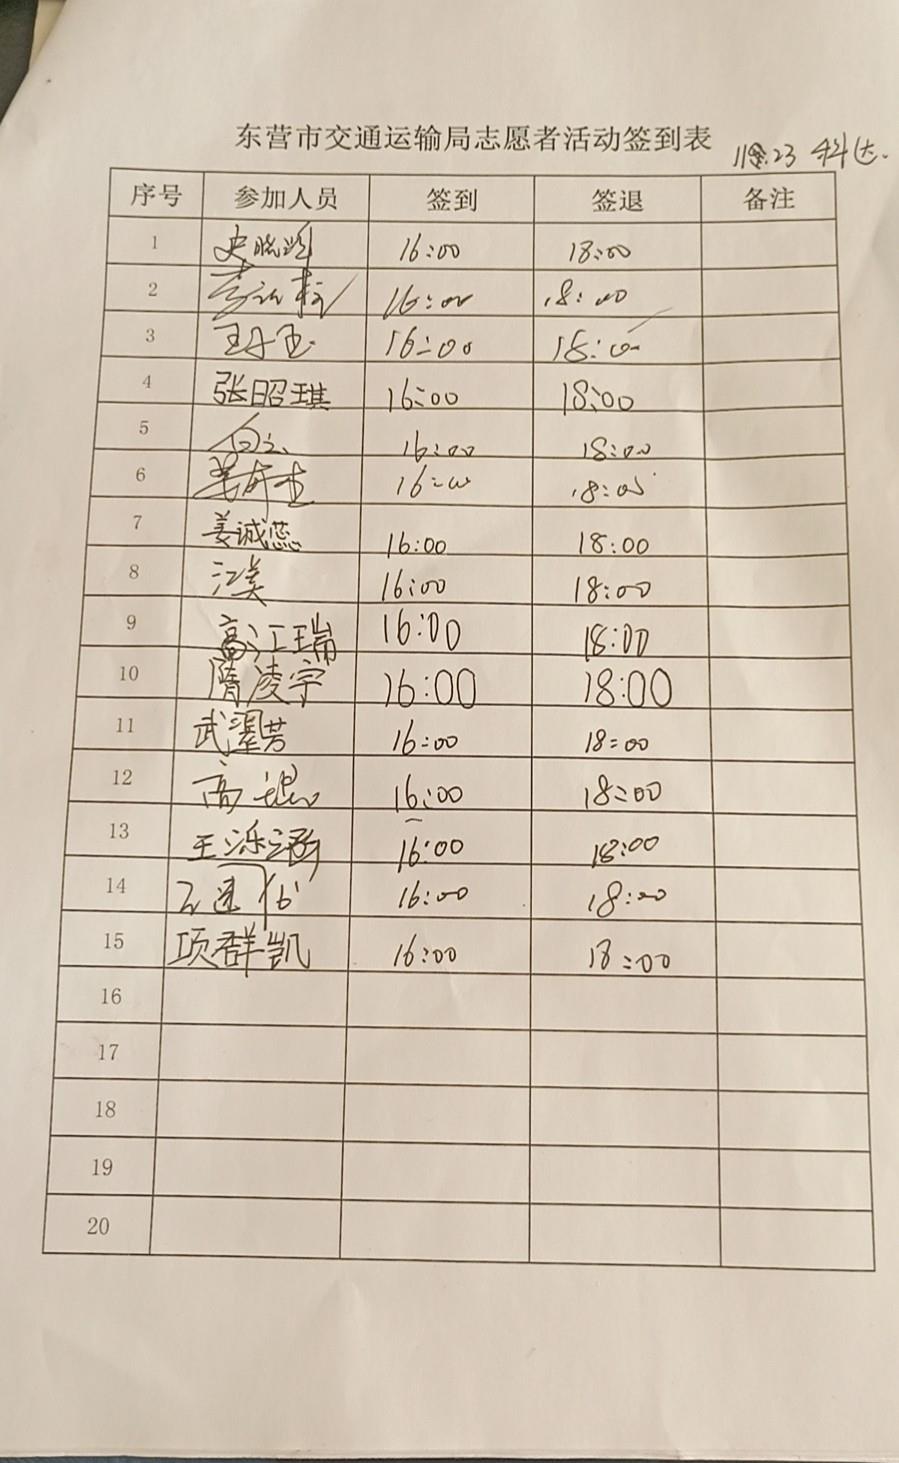 东营市交通运输局志愿者活动签到表
科达.
序号 参加人员 签到 签退 备注
1 史晓 16:00 18:00
2 16:00 18:00
3 王丹玉 16:00 18:00
4 张昭琪 16:00 18:00
5 16:00 18:00
6 16:00 18:00
7 姜诚蕊 16:00 18:00
8 江美 16:00 18:00
9 高江瑞 16:00 18:00
10 隋凌宇 16:00 18:00
11 武芳 16:00 18:00
12 高 16:00 18:00
13 王泺涵 16:00 18:00
14 16:00 18:00
15 项群凯 16:00 18:00
16
17
18
19
20